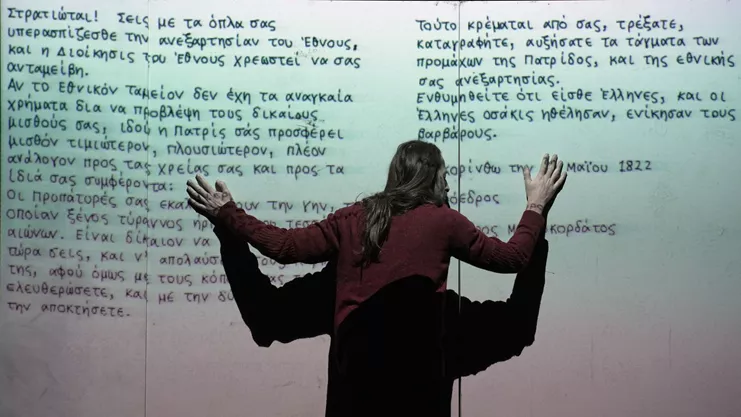 Στρατιώται! Σεις με τα όπλα σας
υπερασπίζεσθε την ανεξαρτησίαν του Έθνους,
και η Διοίκησις του Έθνους χρεωστεί να σας
ανταμείβη.
Αν το Εθνικόν ταμείον δεν έχη τα αναγκαία
χρήματα δια να προβλέψη τους δικαίους
μισθούς σας, ιδού η Πατρίς σάς προσφέρει
μισθόν τιμιώτερον, πλουσιώτερον, πλέον
ανάλογον προς τας χρείας σας και προς τα
ίδιά σας συμφέροντα:
Οι προπατορές σας εκαλ ουν την γην, τ
οποίαν ξένος τύραννος ήρπ τεσσ
αιώνων. Είναι δίκαιον να
τώρα σεις, και ν' απολαύσ τους
της, αφού όμως με τους κόπ σας
ελευθερώσετε, και με την δύ
την αποκτήσετε.
Τούτο κρέμαται από σας, τρέξατε,
καταγραφήτε, αυξήσατε τα τάγματα των
προμάχων της Πατρίδος, και της εθνικής
σας ανεξαρτησίας.
Ενθυμηθείτε ότι είσθε Έλληνες, και οι
Έλληνες οσάκις ηθέλησαν, ενίκησαν τους
βαρβάρους.
κορίνθω την Μαΐου 1822
όεδρος
ος Μ κορδάτος